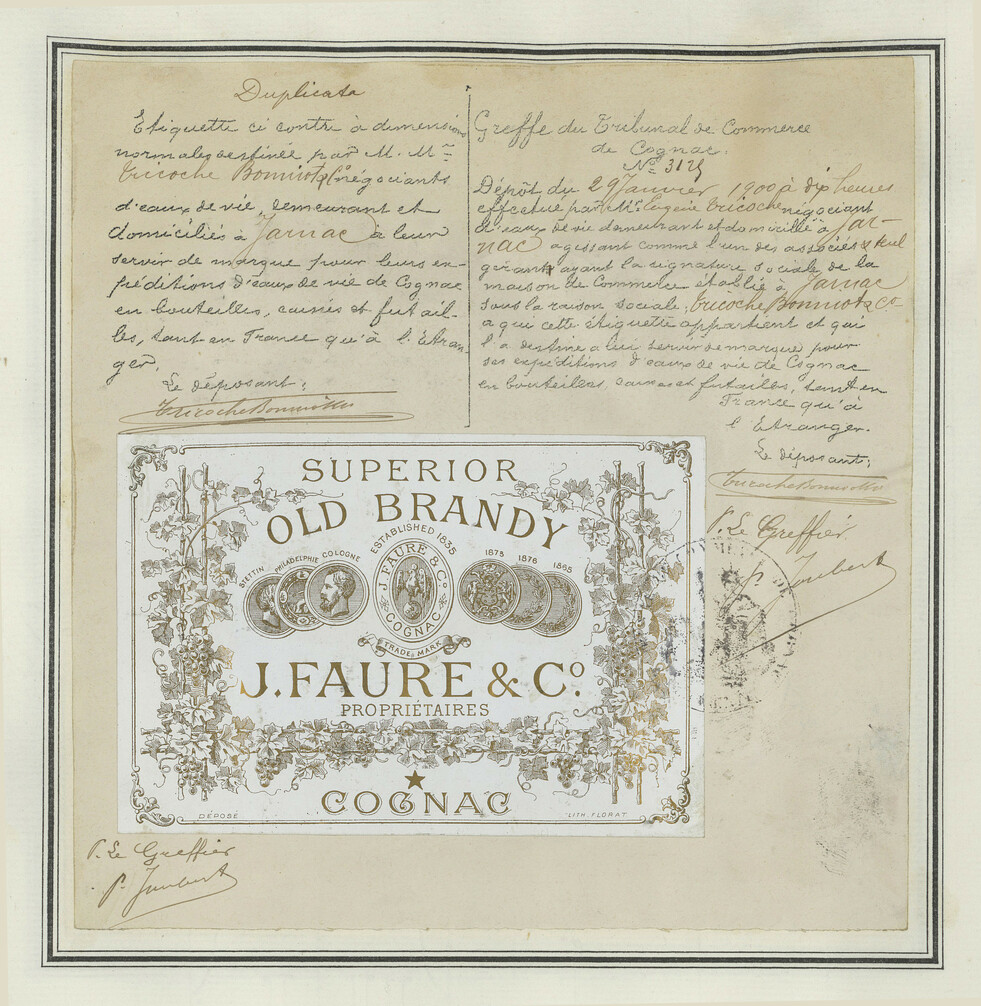 Duplicata
Etiquette ci contre à dimensions
normales destinée par M. M.
Tricoche Bonniot & Co négociants
d'eaux de vie, demeurant et
domiciliés à Jarnac à leur
servir de marque pour leurs ex-
péditions d'eaux de vie de Cognac
en bouteilles, caisses et futail-
les, tant en France qu'à l'Etran-
ger.
Le déposant:
Tricoche Bonniot & Co
Greffe du Tribunal de Commerce
de Cognac.
No
Dépôt du 29 Janvier 1900 à dix heures
effectué par Mr. Eugène Tricoche négociant
d'eaux de vie demeurant et domicilié à Jar-
nac agissant comme l'un des associés & seul
gérant ayant la signature sociale de la
maison de Commerce établie à Jarnac
sous la raison sociale, Tricoche Bonniot & Co
a qui cette étiquette appartient et qui
l'a destine a lui servir de marque pour
ses expéditions d'eaux de vie de Cognac
en bouteilles, caisses et futailles, tant en
France qu'à
l'Etranger.
Le déposant:
Tricoche Bonniot & Co
P. Le Greffier
P. Joubert
SUPERIOR
OLD BRANDY
ESTABLISHED 1835
STETTIN PHILADELPHIE COLOGNE
J. FAURE & Co
COGNAC
1875 1876 1865
TRADE MARK
J. FAURE & Co.
PROPRIÉTAIRES
COGNAC
DÉPOSÉ
LITH. FLORAT
P. Le Greffier
P. Joubert